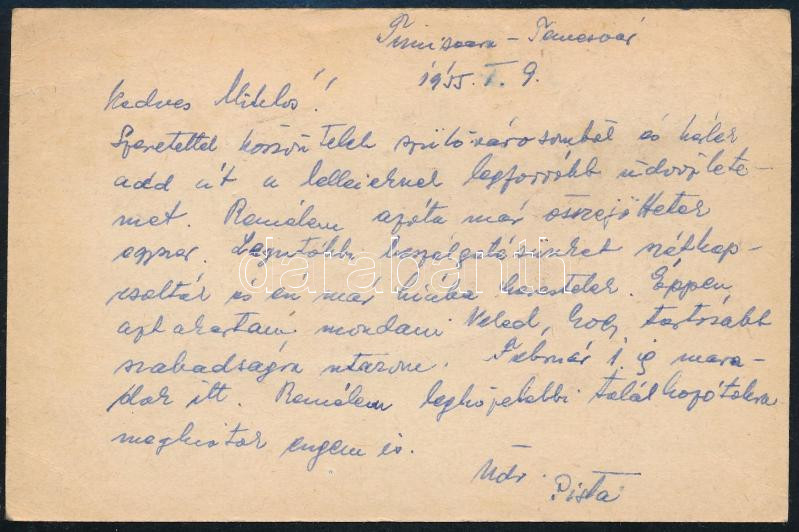 Timisoara – Temesvár
1955. I. 9.
Kedves Miklós!
Szeretettel köszöntelek szülővárosomból és kérlek
add át a lelleieknek legforróbb üdvözlete-
met. Remélem azóta már összejöttetek
egyszer. Legutóbbi beszélgetésünket szétkap-
csolták és én már hiába kerestelek. Éppen
azt akartam mondani Veled, hogy hosszabb
szabadságra utazom. Február 1 ig mara-
dok itt. Remélem legközelebbi találkozótokra
meghívtok engem is.
Üdv.
Pista
darabanth